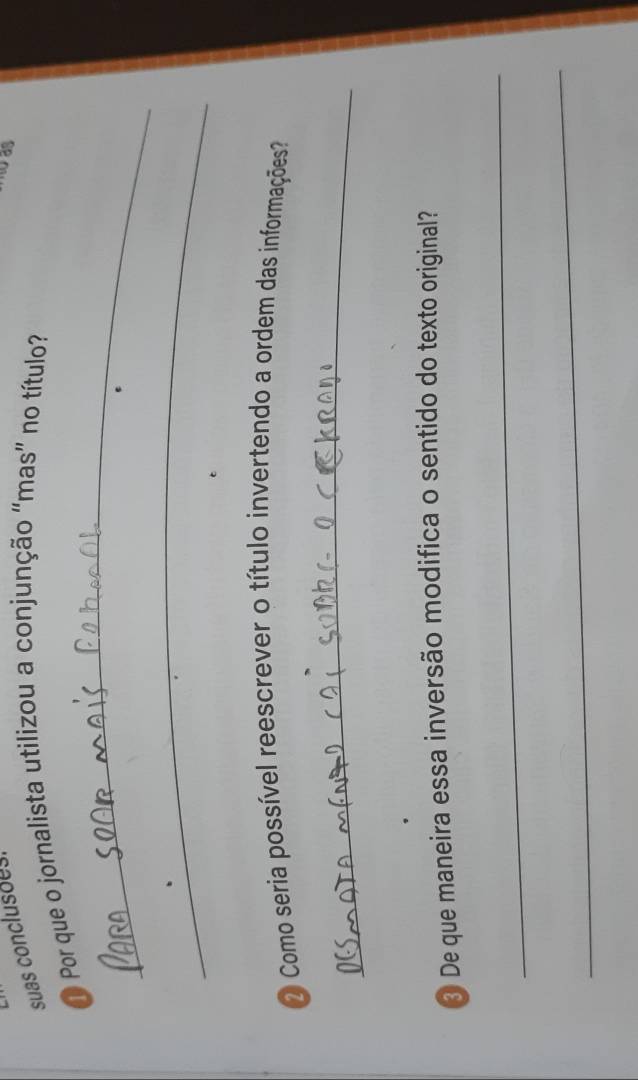 suas conclusões.
1 Por que o jornalista utilizou a conjunção "mas" no título?
PARA SOAR MAIS FORMAL
2 Como seria possível reescrever o título invertendo a ordem das informações?
DESMATAMENTO CAI SOBRE O
3 De que maneira essa inversão modifica o sentido do texto original?